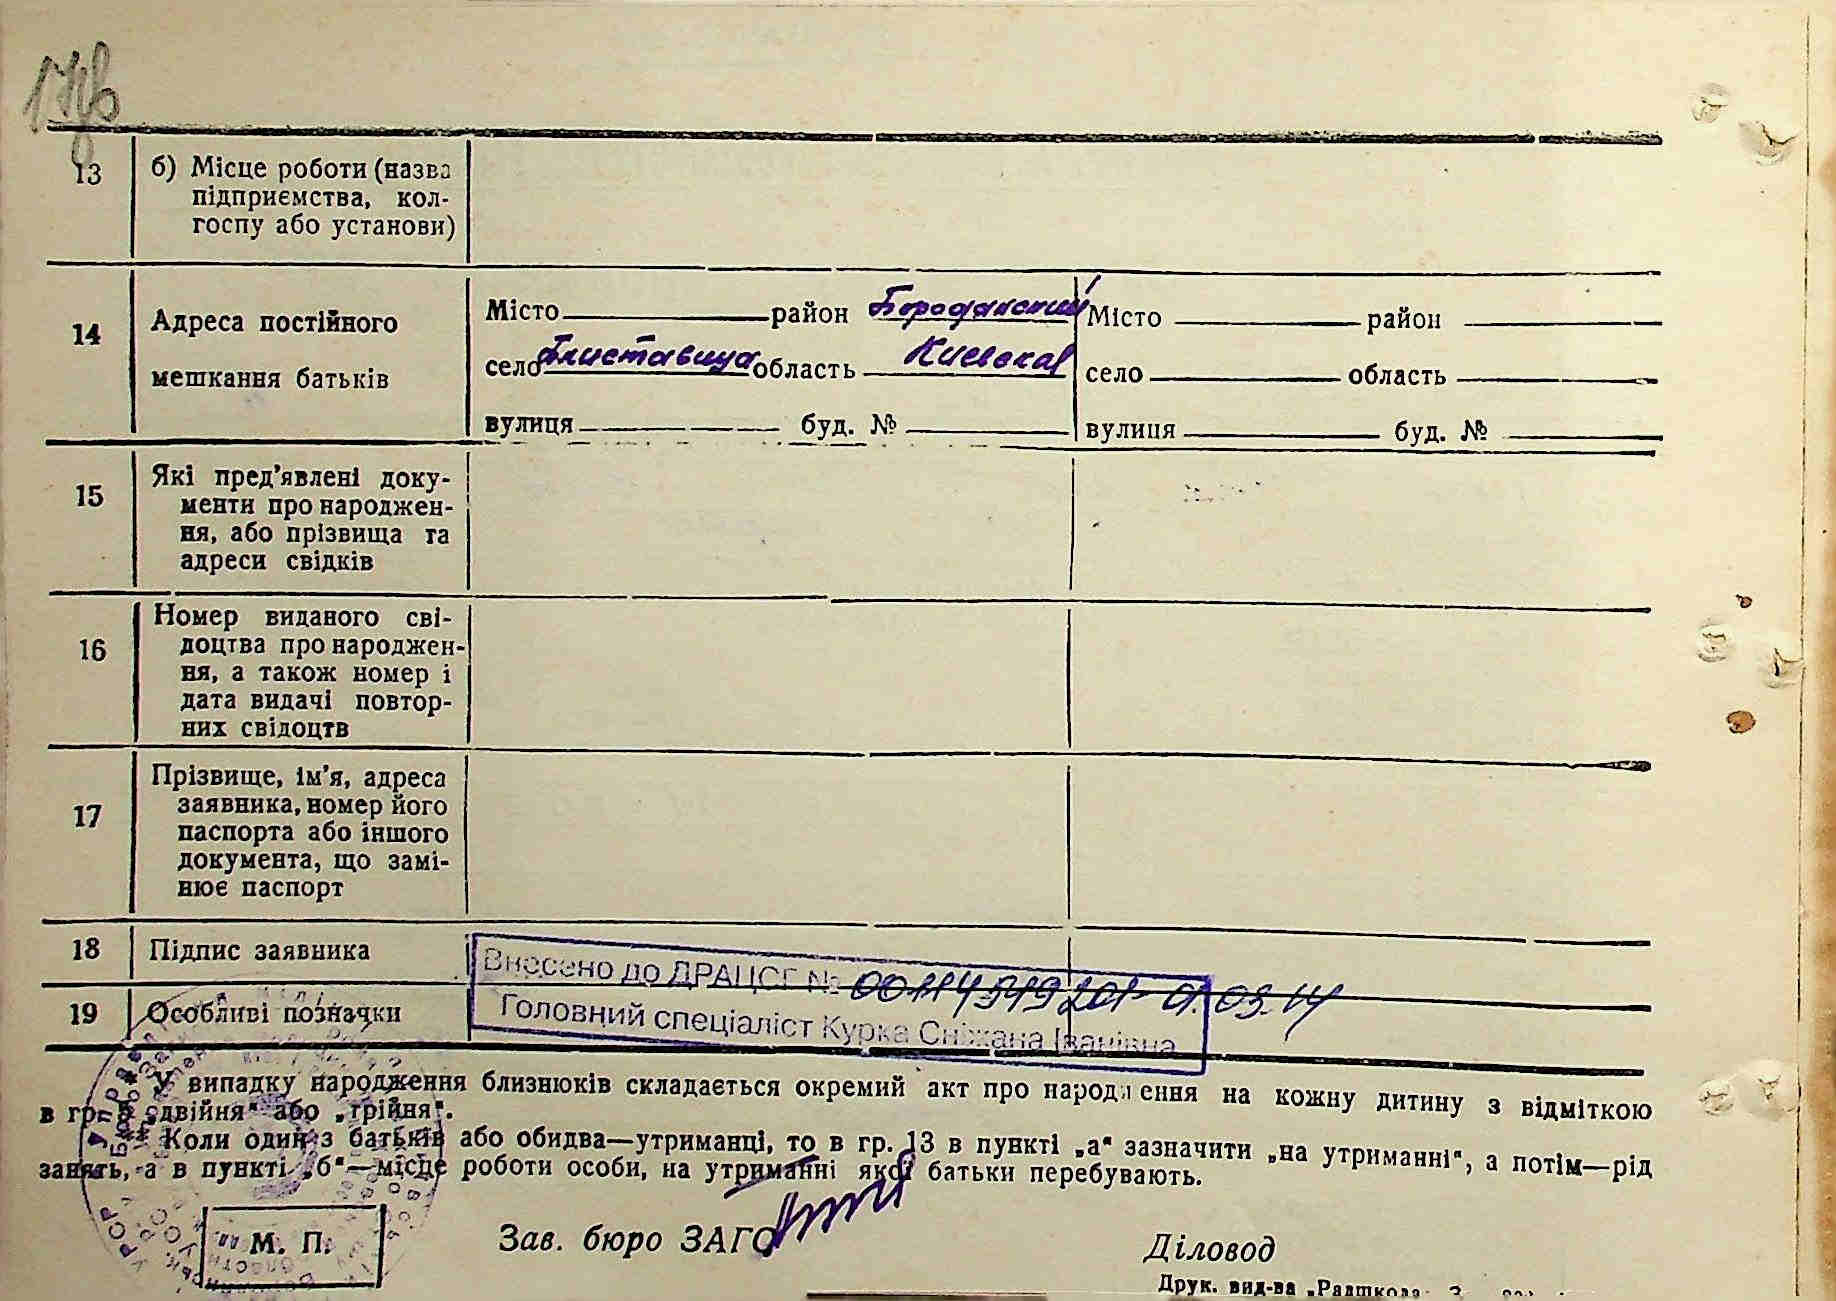 13 б) Місце роботи (назва
підприємства, кол-
госпу або установи)
14 Адреса постійного
мешкання батьків
Місто район Бородянский
село Блиставица область Киевская
вулиця буд. №
Місто район
село область
вулиця буд. №
15 Які пред'явлені доку-
менти про народжен-
ня, або прізвища та
адреси свідків
16 Номер виданого сві-
доцтва про народжен-
ня, а також номер і
дата видачі повтор-
них свідоцтв
17 Прізвище, ім'я, адреса
заявника, номер його
паспорта або іншого
документа, що замі-
нює паспорт
18 Підпис заявника
Внесено до ДРАЦСГ №
19 Особливі позначки
Головний спеціаліст Курка Сніжана Іванівна
У випадку народження близнюків складається окремий акт про народження на кожну дитину з відміткою
в гр. „двійня" або „трійня".
Коли один з батьків або обидва—утриманці, то в гр. 13 в пункті „а" зазначити „на утриманні", а потім—рід
занять, а в пункті „б"—місце роботи особи, на утриманні якої батьки перебувають.
М. П.
Зав. бюро ЗАГС
Діловод
Друк. вид-ва „Радшкола"